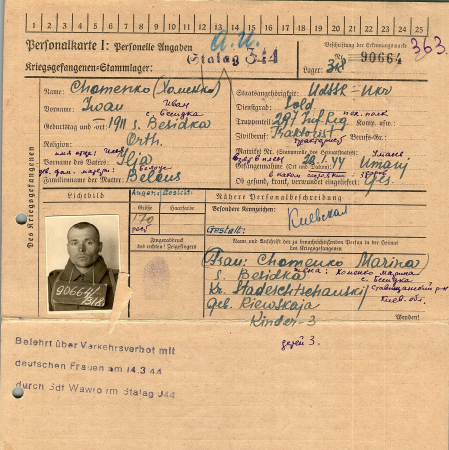 1 2 3 4 5 6 7 8 9 10 11 12 13 14 15 16 17 18 19 20 21 22 23 24 25
Personalkarte I: Personelle Angaben
Kriegsgefangenen-Stammlager: Stalag 344
Beschriftung der Erkennungsmarke
363.
Nr. 90664
Lager:
Des Kriegsgefangenen
Name: Chomenko (Хоменко)
Vorname: Iwan Иван
с. Бесидка
Geburtstag und -ort 1911 s. Besidka
Religion: Orth.
Vorname des Vaters: Ilja
Familienname der Mutter: Beleus
Staatsangehörigkeit: UdSSR - Ukr
Dienstgrad: Sold.
Truppenteil: 297 Inf. Reg Komp. usw.:
Zivilberuf: Traktorist Berufs-Gr.:
тракторист
Matrikel Nr. (Stammrolle des Heimatstaates):
Gefangennahme (Ort und Datum):
Ob gesund, krank, verwundet eingeliefert:
Lichtbild
Augen: Gesicht:
Größe
Haarfarbe
170
Fingerabdruck
des rechten! Zeigefingers
Nähere Personalbeschreibung
Besondere Kennzeichen:
Киевская
Gestalt:
Name und Anschrift der zu benachrichtigenden Person in der Heimat
des Kriegsgefangenen
Frau: Chomenko Marina
s. Besidka
с. Бесидка
Киев. обл.
geb. Kiewskaja
Kinder - 3
Wenden!
детей 3.
90664
Belehrt über Verkehrsverbot mit
deutschen Frauen am 14.3.44
durch Sdf Wawro im Stalag 344